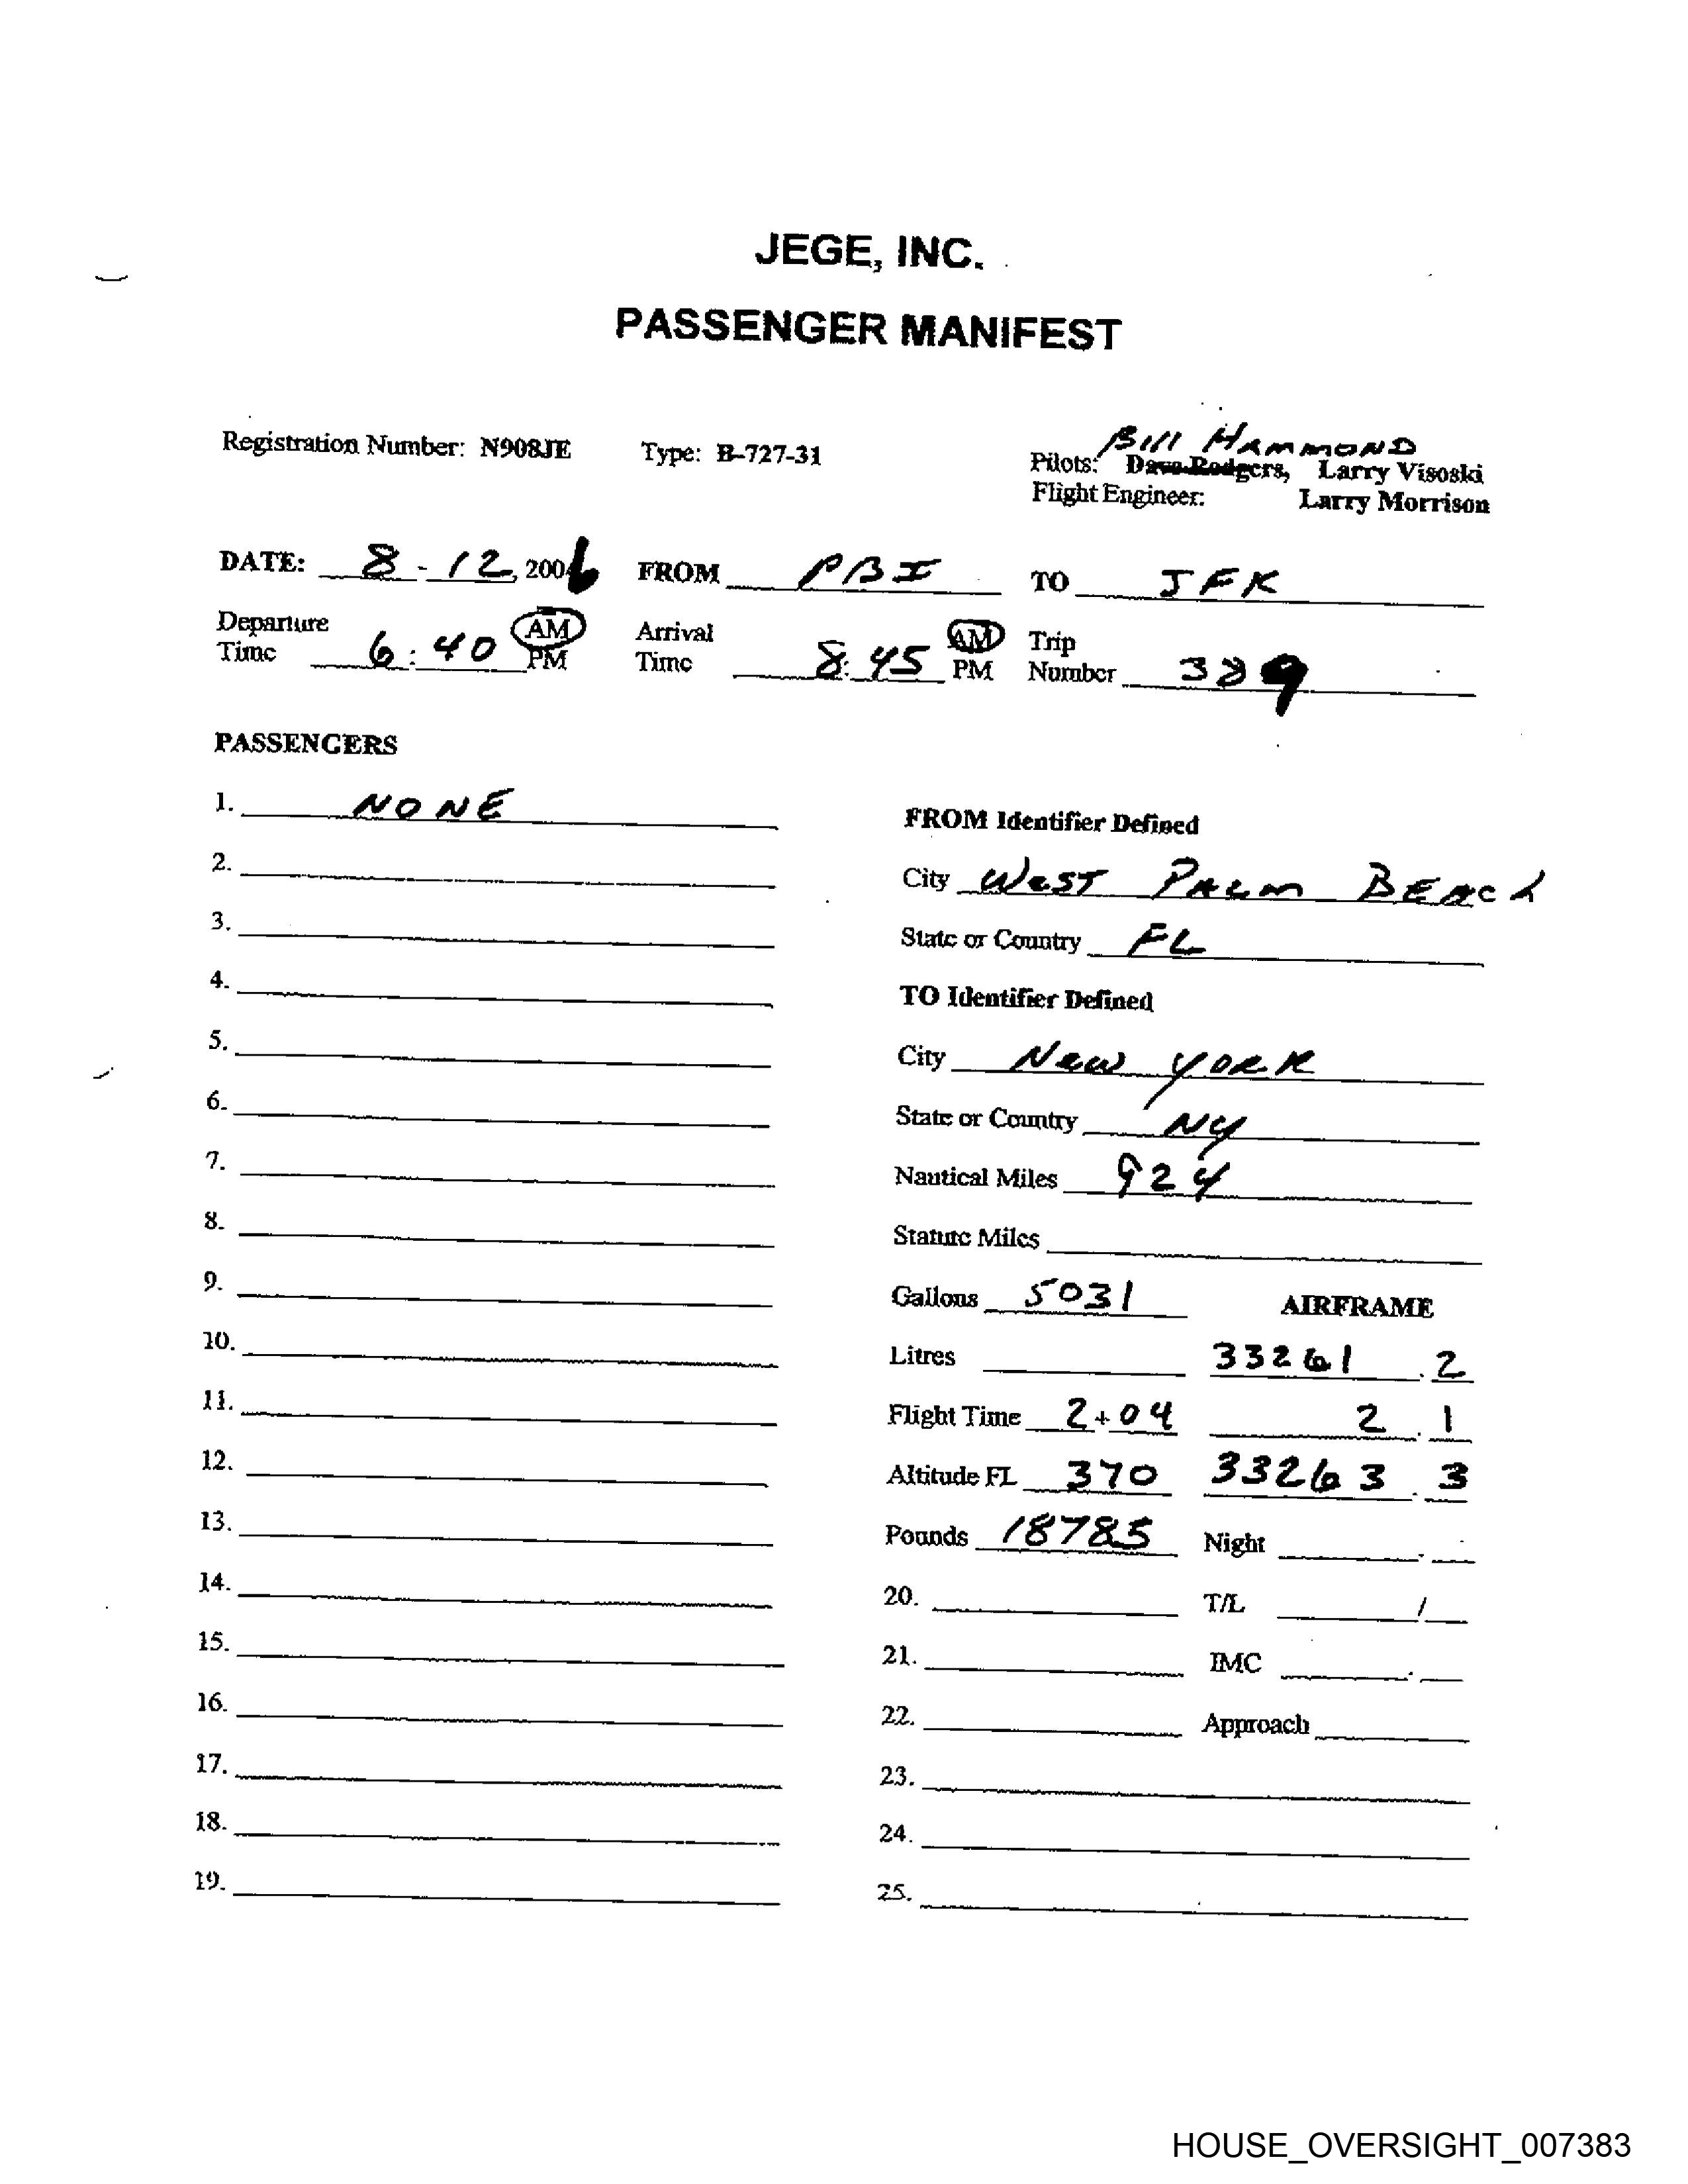 JEGE, INC.
PASSENGER MANIFEST
Registration Number: N908JE Type: B-727-31 Pilots: Dave Rodgers, Bill Hammond Larry Visoski
Flight Engineer: Larry Morrison
DATE: 8 - 12, 2006 FROM PBI TO JFK
Departure Time 6:40 AM PM Arrival Time 8:45 AM PM Trip Number 389
PASSENGERS
1. NONE
2.
3.
4.
5.
6.
7.
8.
9.
10.
11.
12.
13.
14.
15.
16.
17.
18.
19.
FROM Identifier Defined
City WEST PALM BEACH
State or Country FL
TO Identifier Defined
City New YORK
State or Country NY
Nautical Miles 924
Statute Miles
Gallons 5031 AIRFRAME
Litres 33261 . 2
Flight Time 2+04 2 . 1
Altitude FL 370 33263 . 3
Pounds 18785 Night .
20. T/L /
21. IMC .
22. Approach
23.
24.
25.
HOUSE_OVERSIGHT_007383